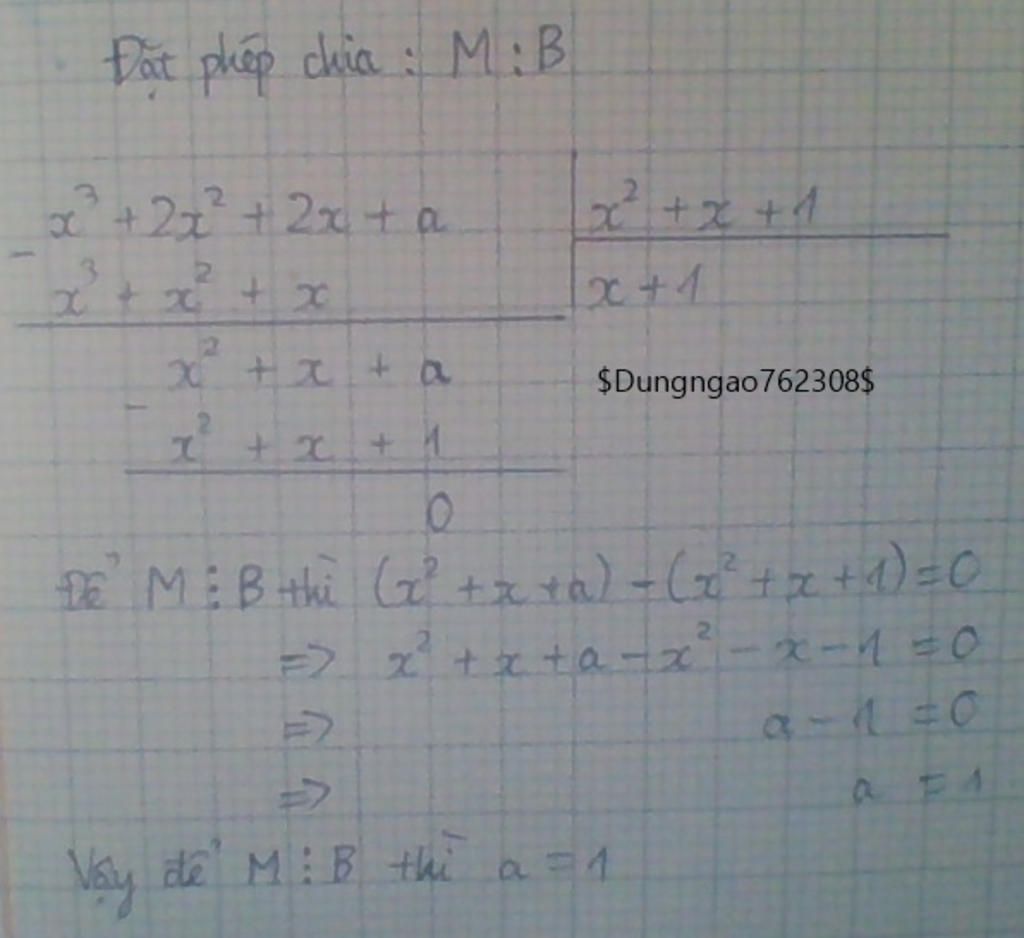 Đặt phép chia : M : B
x³ + 2x² + 2x + a | x² + x + 1
- x³ + x² + x | x + 1
x² + x + a
$Dungngao762308$
- x² + x + 1
0
Để M ⋮ B thì (x² + x + a) - (x² + x + 1) = 0
=> x² + x + a - x² - x - 1 = 0
=> a - 1 = 0
=> a = 1
Vậy để M ⋮ B thì a = 1